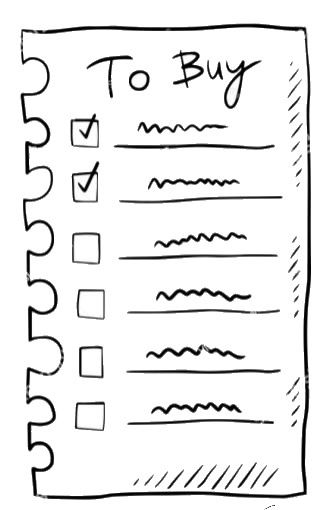 To Buy